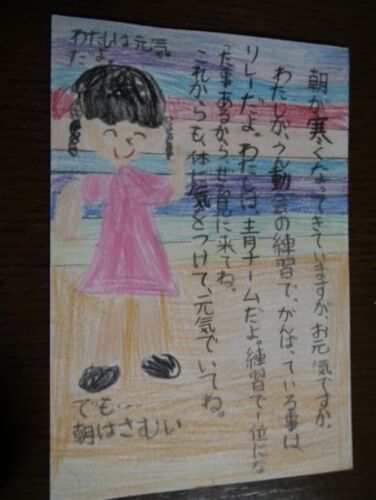 わたしは元気
だよ。
朝が寒くなってきていますが、お元気ですか。
わたしが、うん動会の練習で、がんばっている事は
リレーだよ。わたしは、青チームだよ。練習で一位にな
った事あるから、ぜひ見に来てね。
これからも、体に気をつけて、元気でいてね。
でも…
朝はさむい